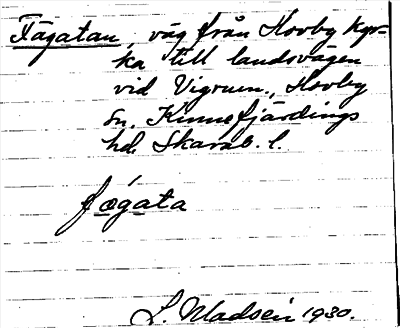 Fägatan, väg från Hovby kyr-
ka till landsvägen
vid Vigrum., Hovby
sn. Kinnefjärdings
hd. Skarab. l.
fæ´gata
L. Madsén 1930.